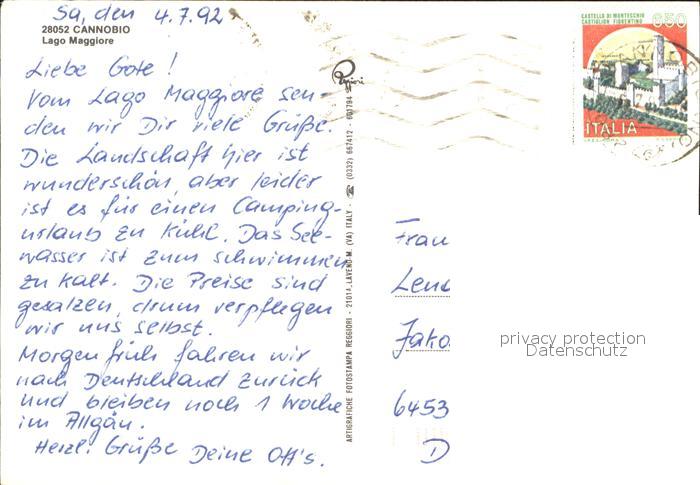 Sa, den 4.7.92
28052 CANNOBIO
Lago Maggiore
Liebe Gote!
Vom Lago Maggiore sen-
den wir Dir viele Grüße.
Die Landschaft hier ist
wunderschön, aber leider
ist es für einen Camping-
urlaub zu kühl. Das See-
wasser ist zum schwimmen
zu kalt. Die Preise sind
gesalzen, drum verpflegen
wir uns selbst.
Morgen früh fahren wir
nach Deutschland zurück
und bleiben noch 1 Woche
im Allgäu.
Herzl. Grüße Deine Ott's.
ARTIGRAFICHE FOTOSTAMPA REGGIORI - 21014 LAVENO-M. (VA) ITALY - ☎ (0332) 667412 - 601794
CASTELLO DI MONTECCHIO
CASTIGLION FIORENTINO
650
ITALIA
Frau
Lene
Jako
6453
D
privacy protection
Datenschutz